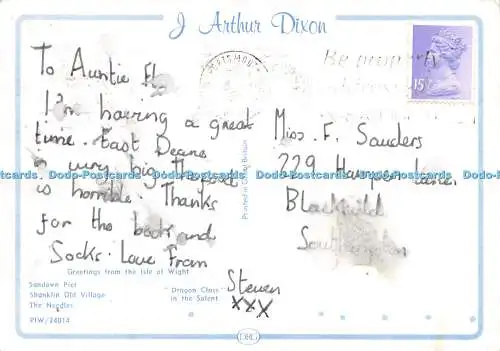 J Arthur Dixon
To Auntie Fl
I'm having a great
time. East Deane
is very big. The food
is horrible. Thanks
for the book and
Socks. Love From
Steven
xxx
Be properly
15
Miss. F. Sauders
229 Hampton Lane.
Blackfield
Southampton
Printed in Great Britain
Greetings from the Isle of Wight
Sandown Pier
Shanklin Old Village
The Needles
"Dragon Class"
in the Solent
PIW/24014
DRG
Dodo-Postcards Dodo-Postcards Dodo-Postcards Dodo-Postcards